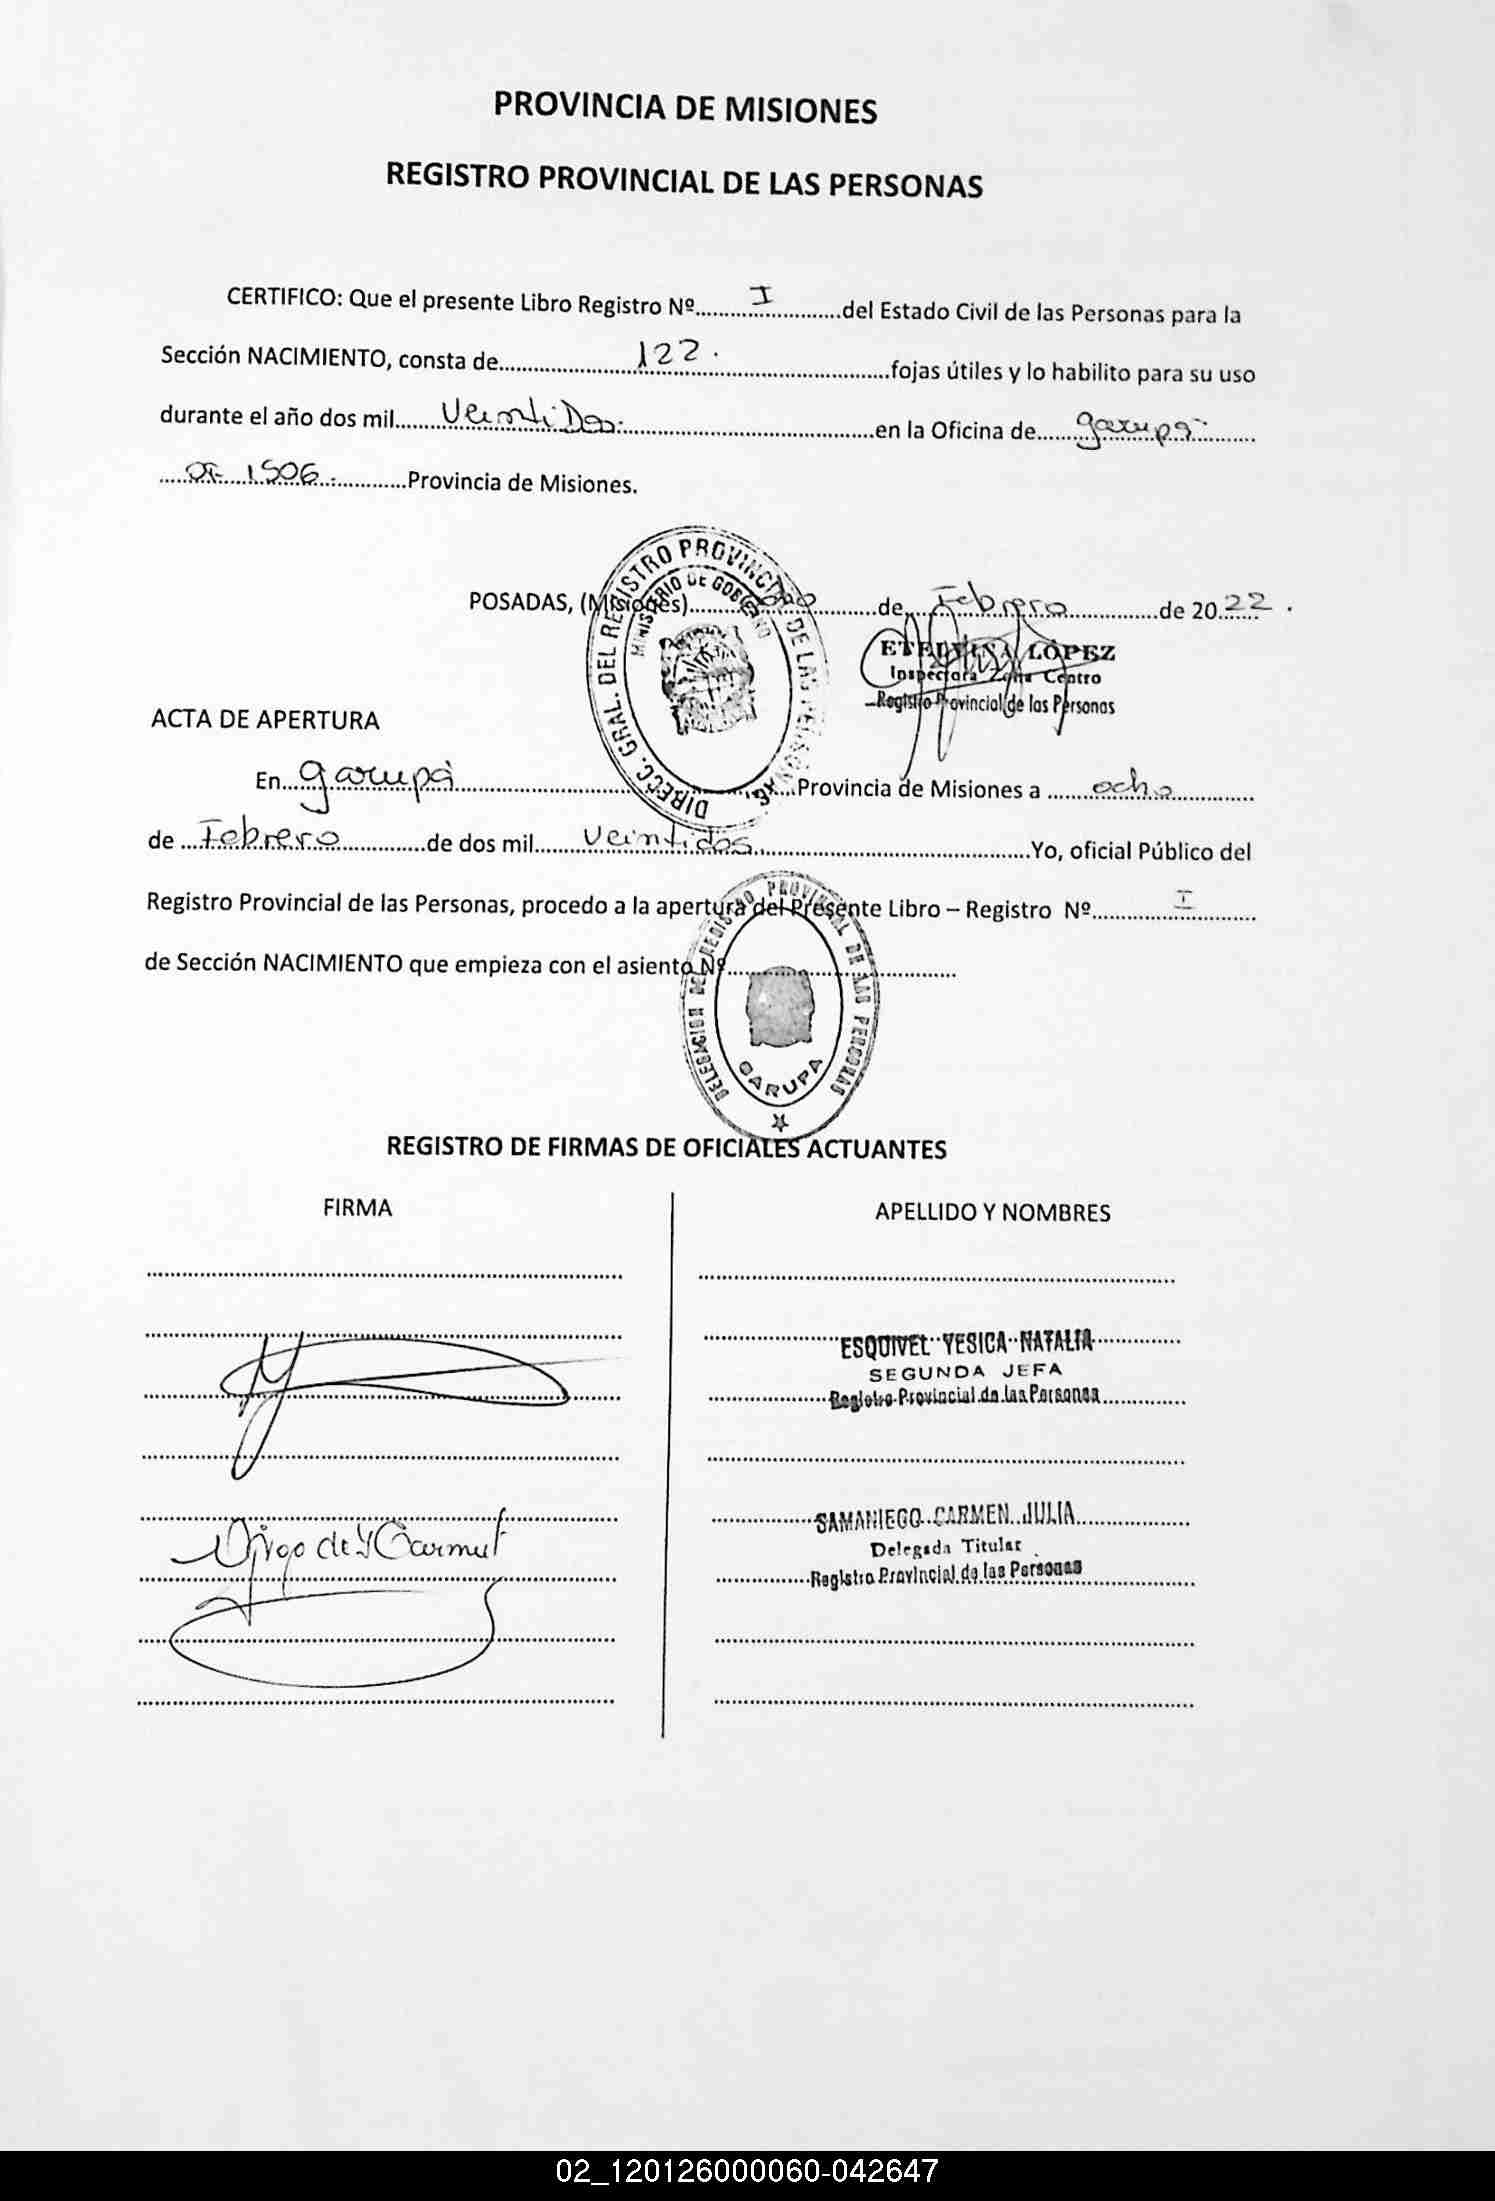 PROVINCIA DE MISIONES
REGISTRO PROVINCIAL DE LAS PERSONAS
CERTIFICO: Que el presente Libro Registro Nº..........I..........del Estado Civil de las Personas para la
Sección NACIMIENTO, consta de..........122..........fojas útiles y lo habilito para su uso
durante el año dos mil..........Veinti Dos..........en la Oficina de..........Garupá..........
..........OF 1506..........Provincia de Misiones.
POSADAS, (Misiones)..........ocho..........de..........Febrero..........de 20 22.
DIRECC. GRAL. DEL REGISTRO PROVINCIAL DE LAS PERSONAS
MINISTERIO DE GOBIERNO
ETELVINA LÓPEZ
Inspectora Zona Centro
Registro Provincial de las Personas
ACTA DE APERTURA
En..........Garupá..........Provincia de Misiones a ..........ocho..........
de ..........Febrero..........de dos mil..........Veintidos..........Yo, oficial Público del
Registro Provincial de las Personas, procedo a la apertura del Presente Libro – Registro Nº..........I..........
de Sección NACIMIENTO que empieza con el asiento Nº..........
DELEGACION DEL REGISTRO PROVINCIAL DE LAS PERSONAS
GARUPA
REGISTRO DE FIRMAS DE OFICIALES ACTUANTES
FIRMA APELLIDO Y NOMBRES
ESQUIVEL YESICA NATALIA
SEGUNDA JEFA
Registro Provincial de las Personas
SAMANIEGO CARMEN JULIA
Delegada Titular
Registro Provincial de las Personas
02_120126000060-042647